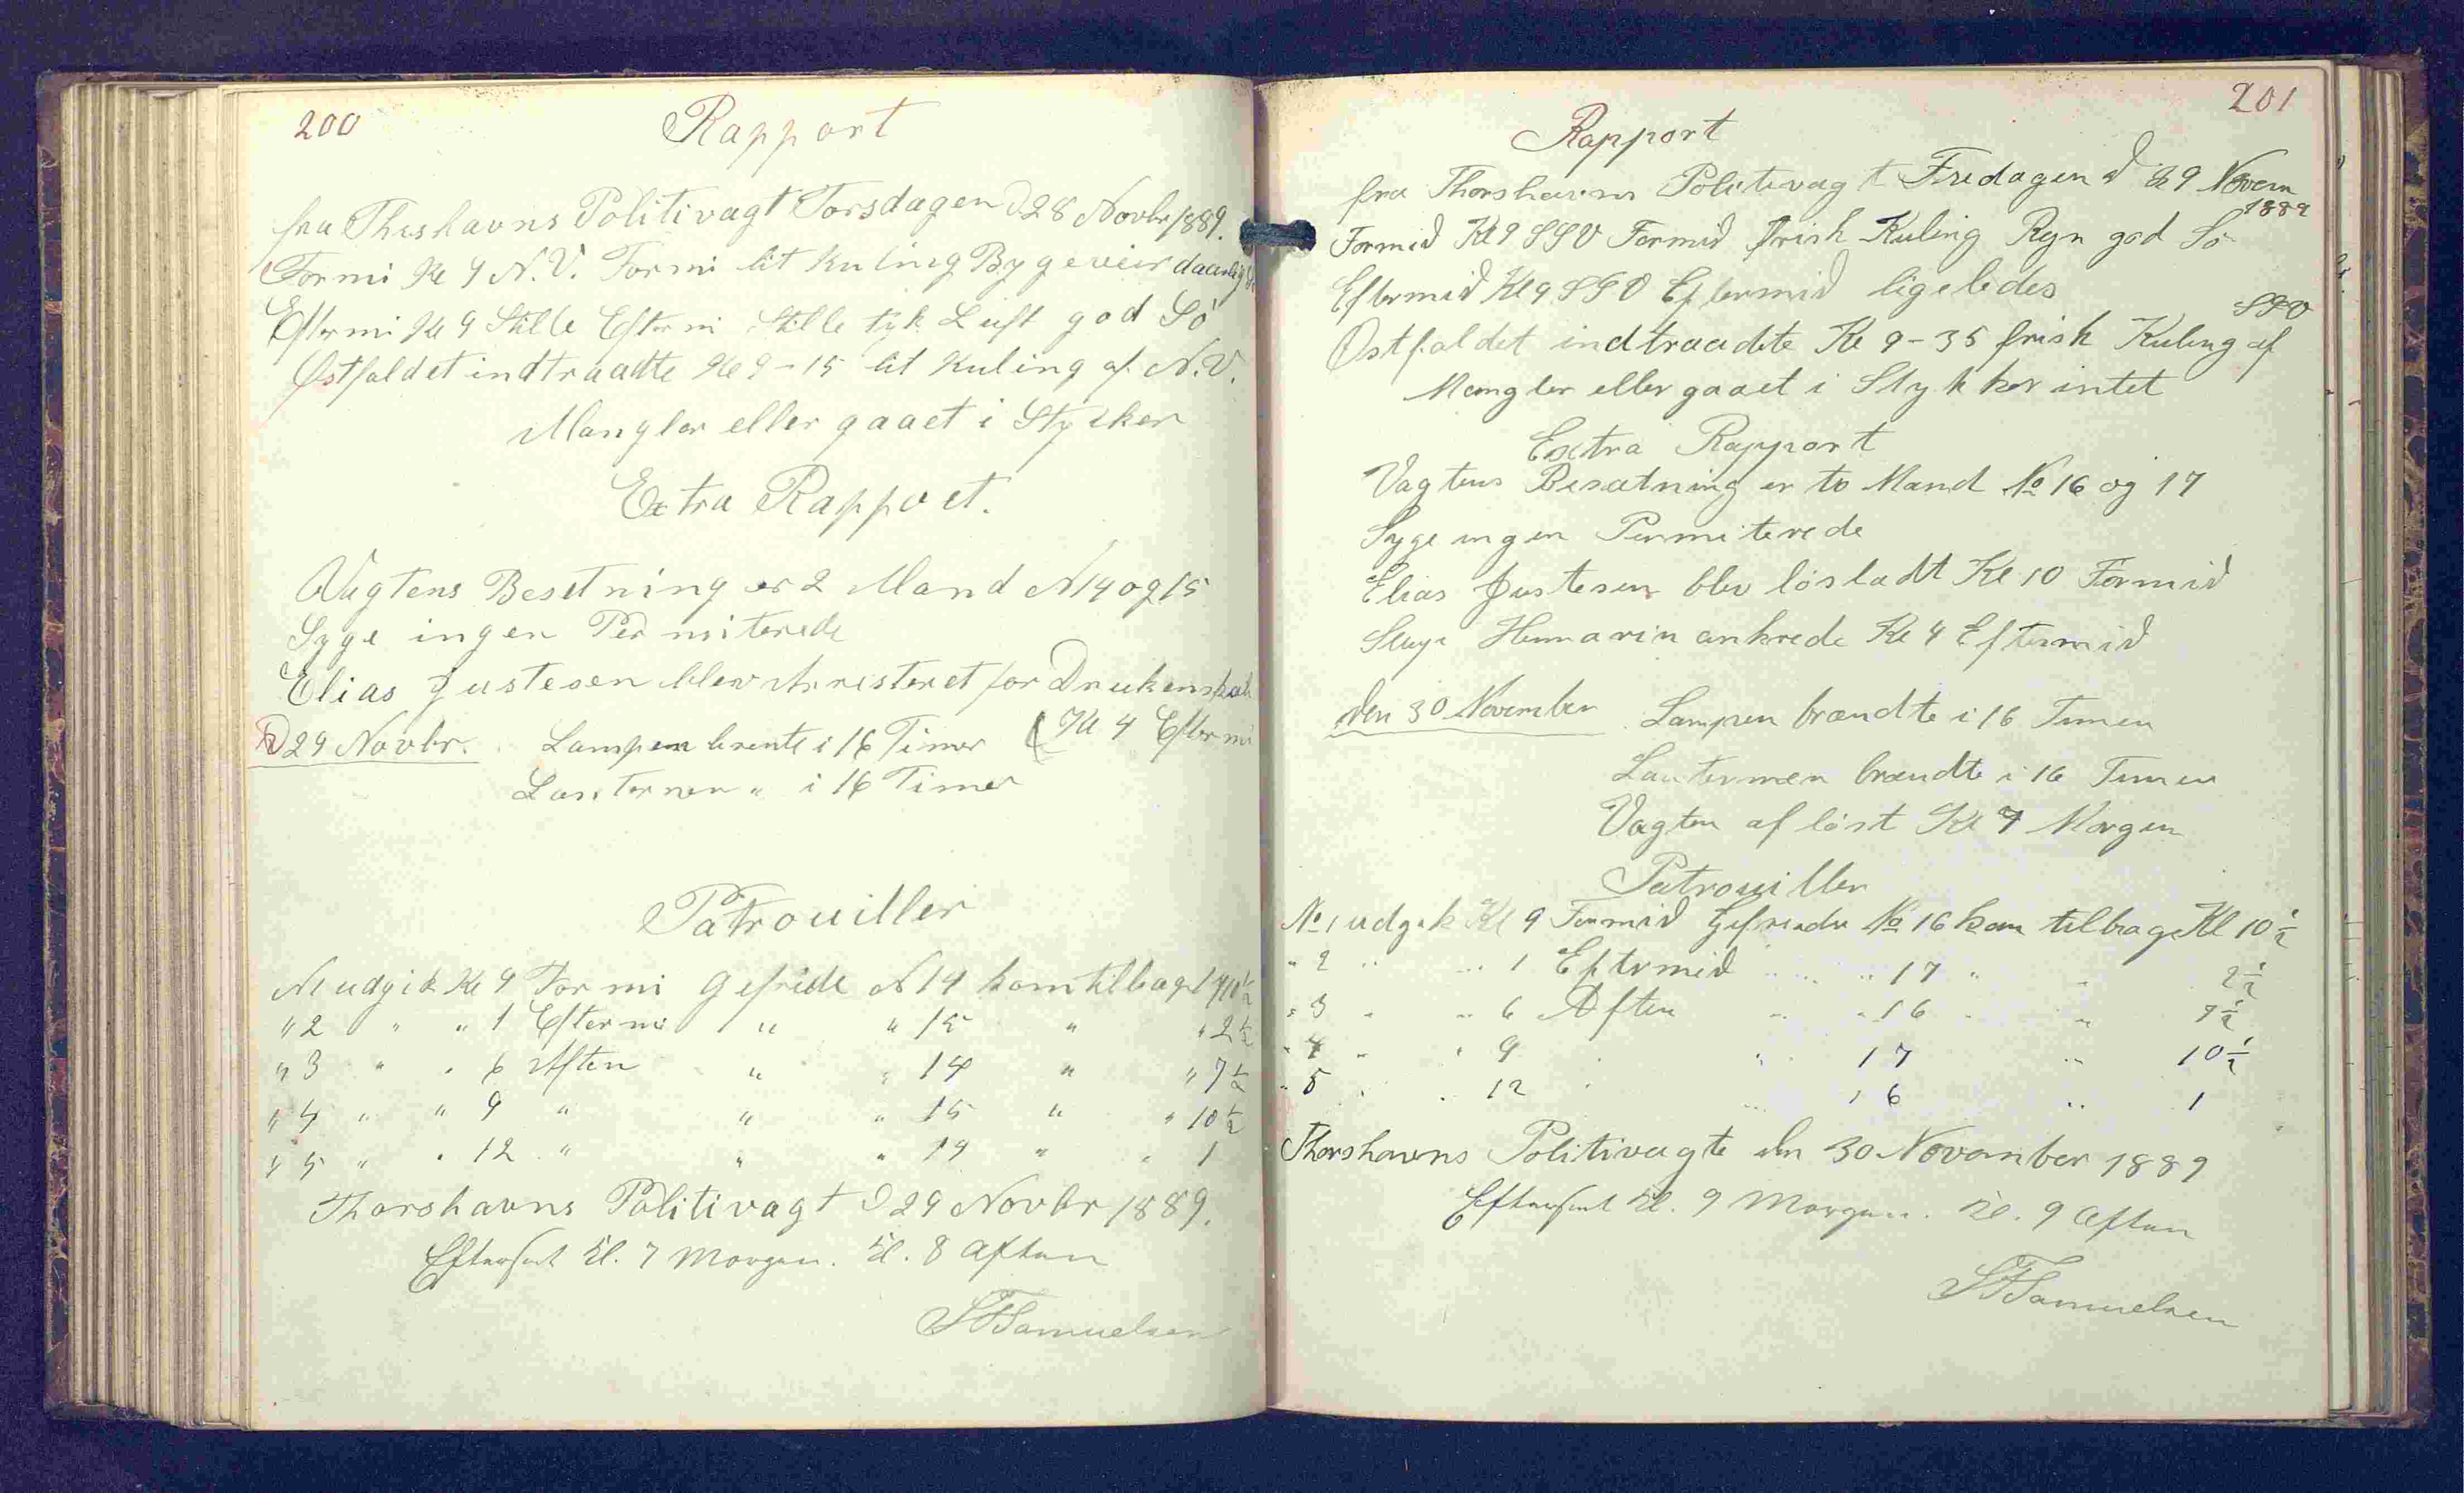 200
Rapport
fra Thorshavns Politivagt Torsdagen D 28 Novbr 1889.
Formi Kl 9 N.V. Formi lit Kuling Bygeveir daarlig
Eftermi Kl 9 Stille Eftermi Stille tyk Luft god Sö
Østfaldet indtraadte Kl 9-15 lit Kuling af N.V.
Mangler eller gaaet i Stycker
Extra Rapport.
Vagtens Besetning er 2 Mand N 14 og 15
Syge ingen Permiterede
Elias Justesen blev Arristeret for Drukenskab
( Kl 4 Eftermi
D 29 Novbr. Lampen brente i 16 Timer
Lanternen " i 16 Timer
Patrouiller
N 1 udgik Kl 9 Formi Gefride N 14 kom tilbage 10½
" 2 " " 1 Eftermi " " 15 " " 2½
" 3 " " 6 Aften " " 14 " " 7½
" 4 " " 9 " " " 15 " " 10½
" 5 " " 12 " " " 14 " " 1
Thorshavns Politivagt D 29 Novbr 1889.
Efterseet Kl. 7 Morgen. Kl. 8 Aften
Samuelsen
201
Rapport
fra Thorshavns Politivagt Fredagen d 29 Novem
1889
Formid Kl 9 SSV Formid frisk Kuling Regn god Sö
Eftermid Kl 9 SSV Eftermid ligeledes
Østfaldet indtraadte Kl 9-35 frisk Kuling af SSV
Mangler eller gaaet i Stykker intet
Extra Rapport
Vagtens Besætning er to Mand No 16 og 17
Syge ingen Permiterede
Elias Justesen blev lösladt Kl 10 Formid
ankrede Kl 4 Eftermid
den 30 November Lampen brændte i 16 Timer
Lanternen brændte i 16 Timer
Vagten aflöst Kl 7 Morgen
Patrouiller
No 1 udgik Kl 9 Formid Gefreider No 16 kom tilbage Kl 10½
" 2 " " 1 Eftermid " " 17 " " 2½
" 3 " " 6 Aften " " 16 " " 7½
" 4 " " 9 " " 17 " 10½
" 5 " " 12 " " 16 " 1
Thorshavns Politivagt den 30 November 1889
Efterseet Kl. 9 Morgen. Kl. 9 Aften
Samuelsen